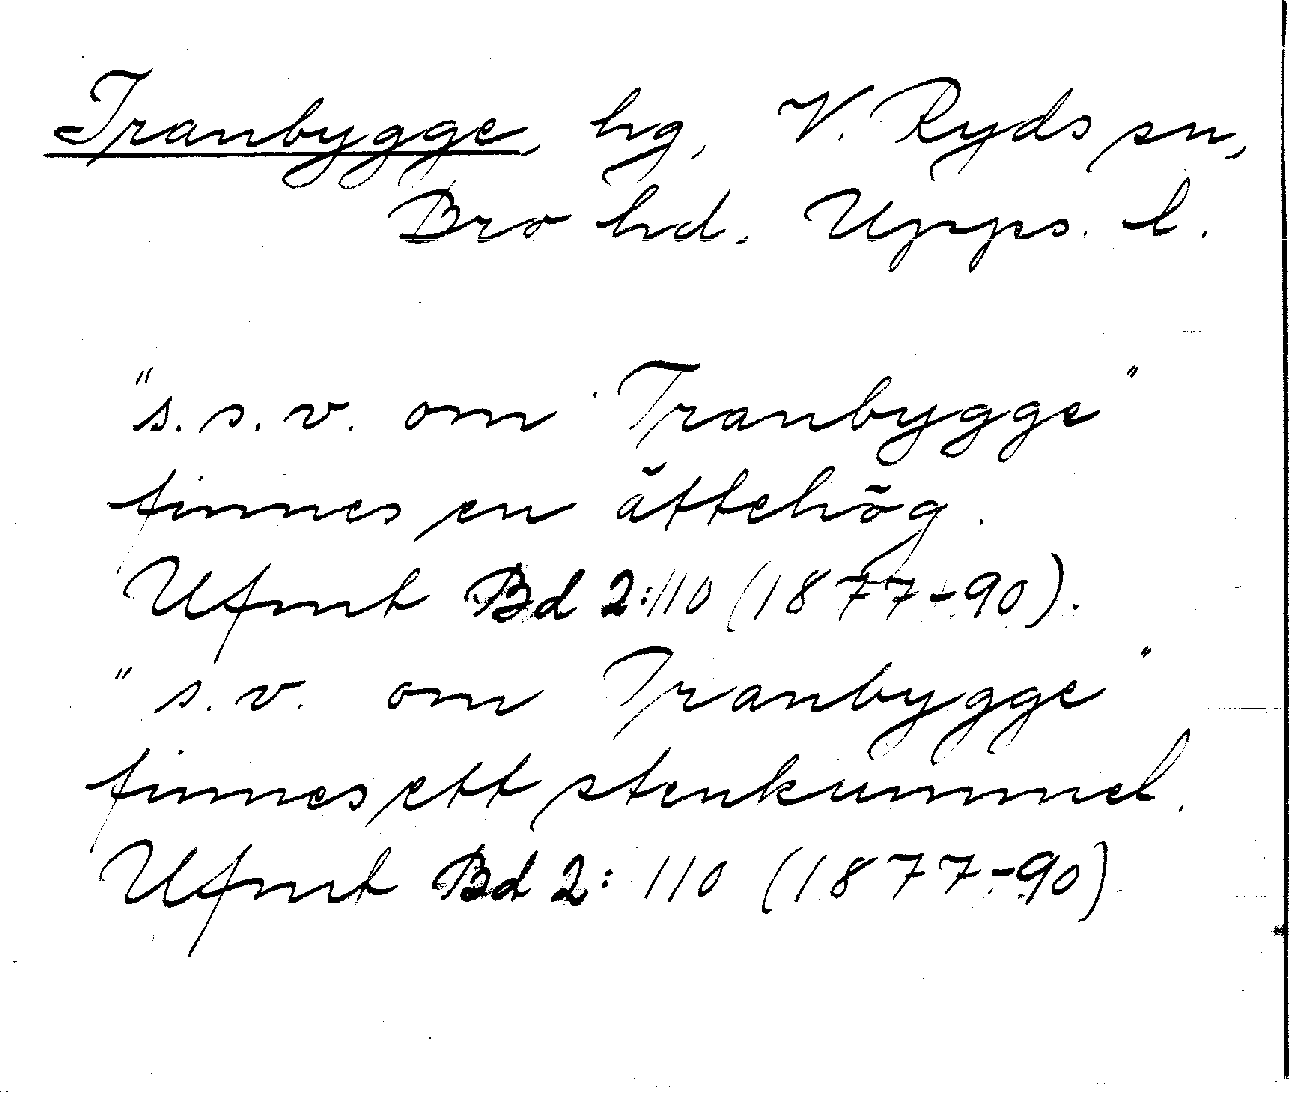 Tranbygge, hg, V. Ryds sn,
Bro hd. Upps. l.
"s.s.v. om Tranbygge"
finnes en ättehög.
Ufmt Bd 2:110 (1877-90).
"s.v. om Tranbygge"
finnes ett stenkummel.
Ufmt Bd 2: 110 (1877-90)